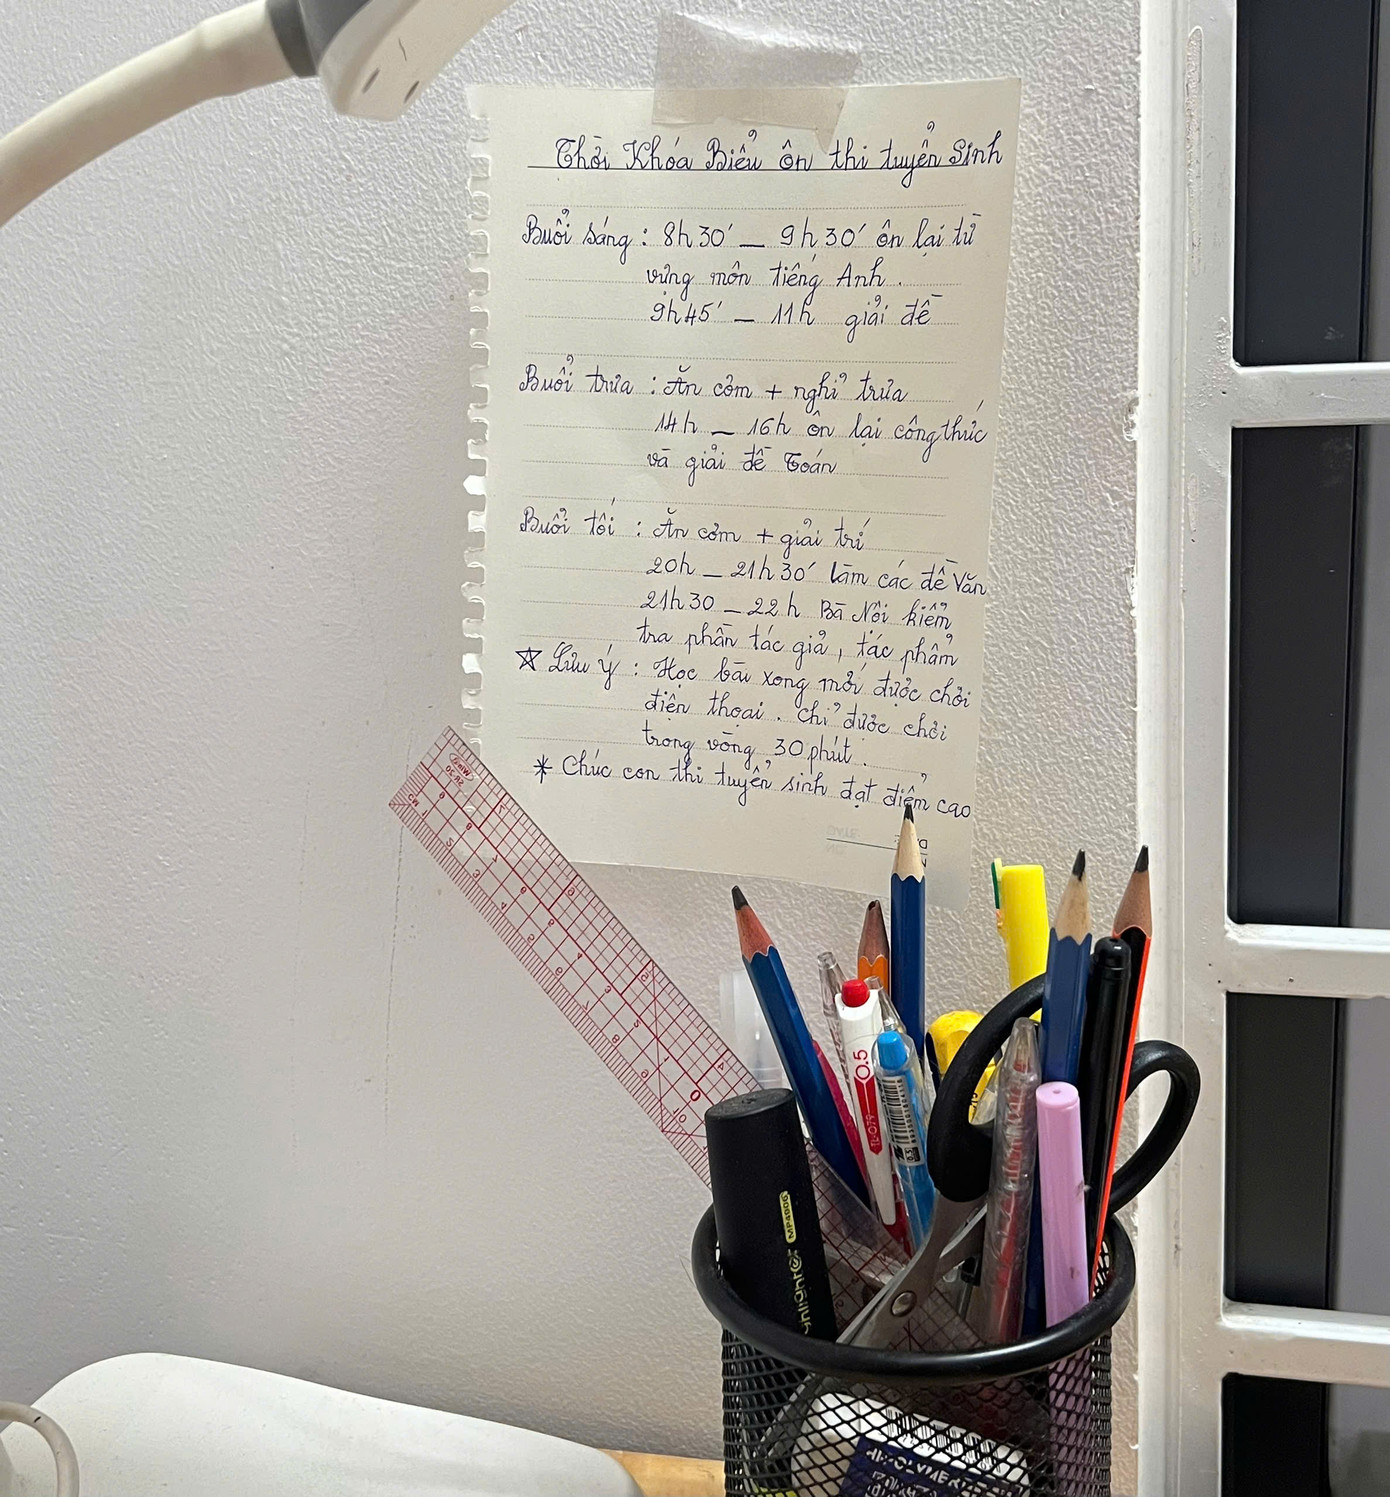 Thời Khóa Biểu ôn thi tuyển sinh
Buổi sáng : 8h30' – 9h30' ôn lại từ
vựng môn tiếng Anh.
9h45' – 11h giải đề
Buổi trưa : Ăn cơm + nghỉ trưa
14h – 16h ôn lại công thức
và giải đề Toán
Buổi tối : Ăn cơm + giải trí
20h – 21h30' làm các đề Văn
21h30 – 22h Bà Nội kiểm
tra phần tác giả, tác phẩm
☆ Lưu ý : Học bài xong mới được chơi
điện thoại. Chỉ được chơi
trong vòng 30 phút.
* Chúc con thi tuyển sinh đạt điểm cao
0.5
TL-079
MP4906